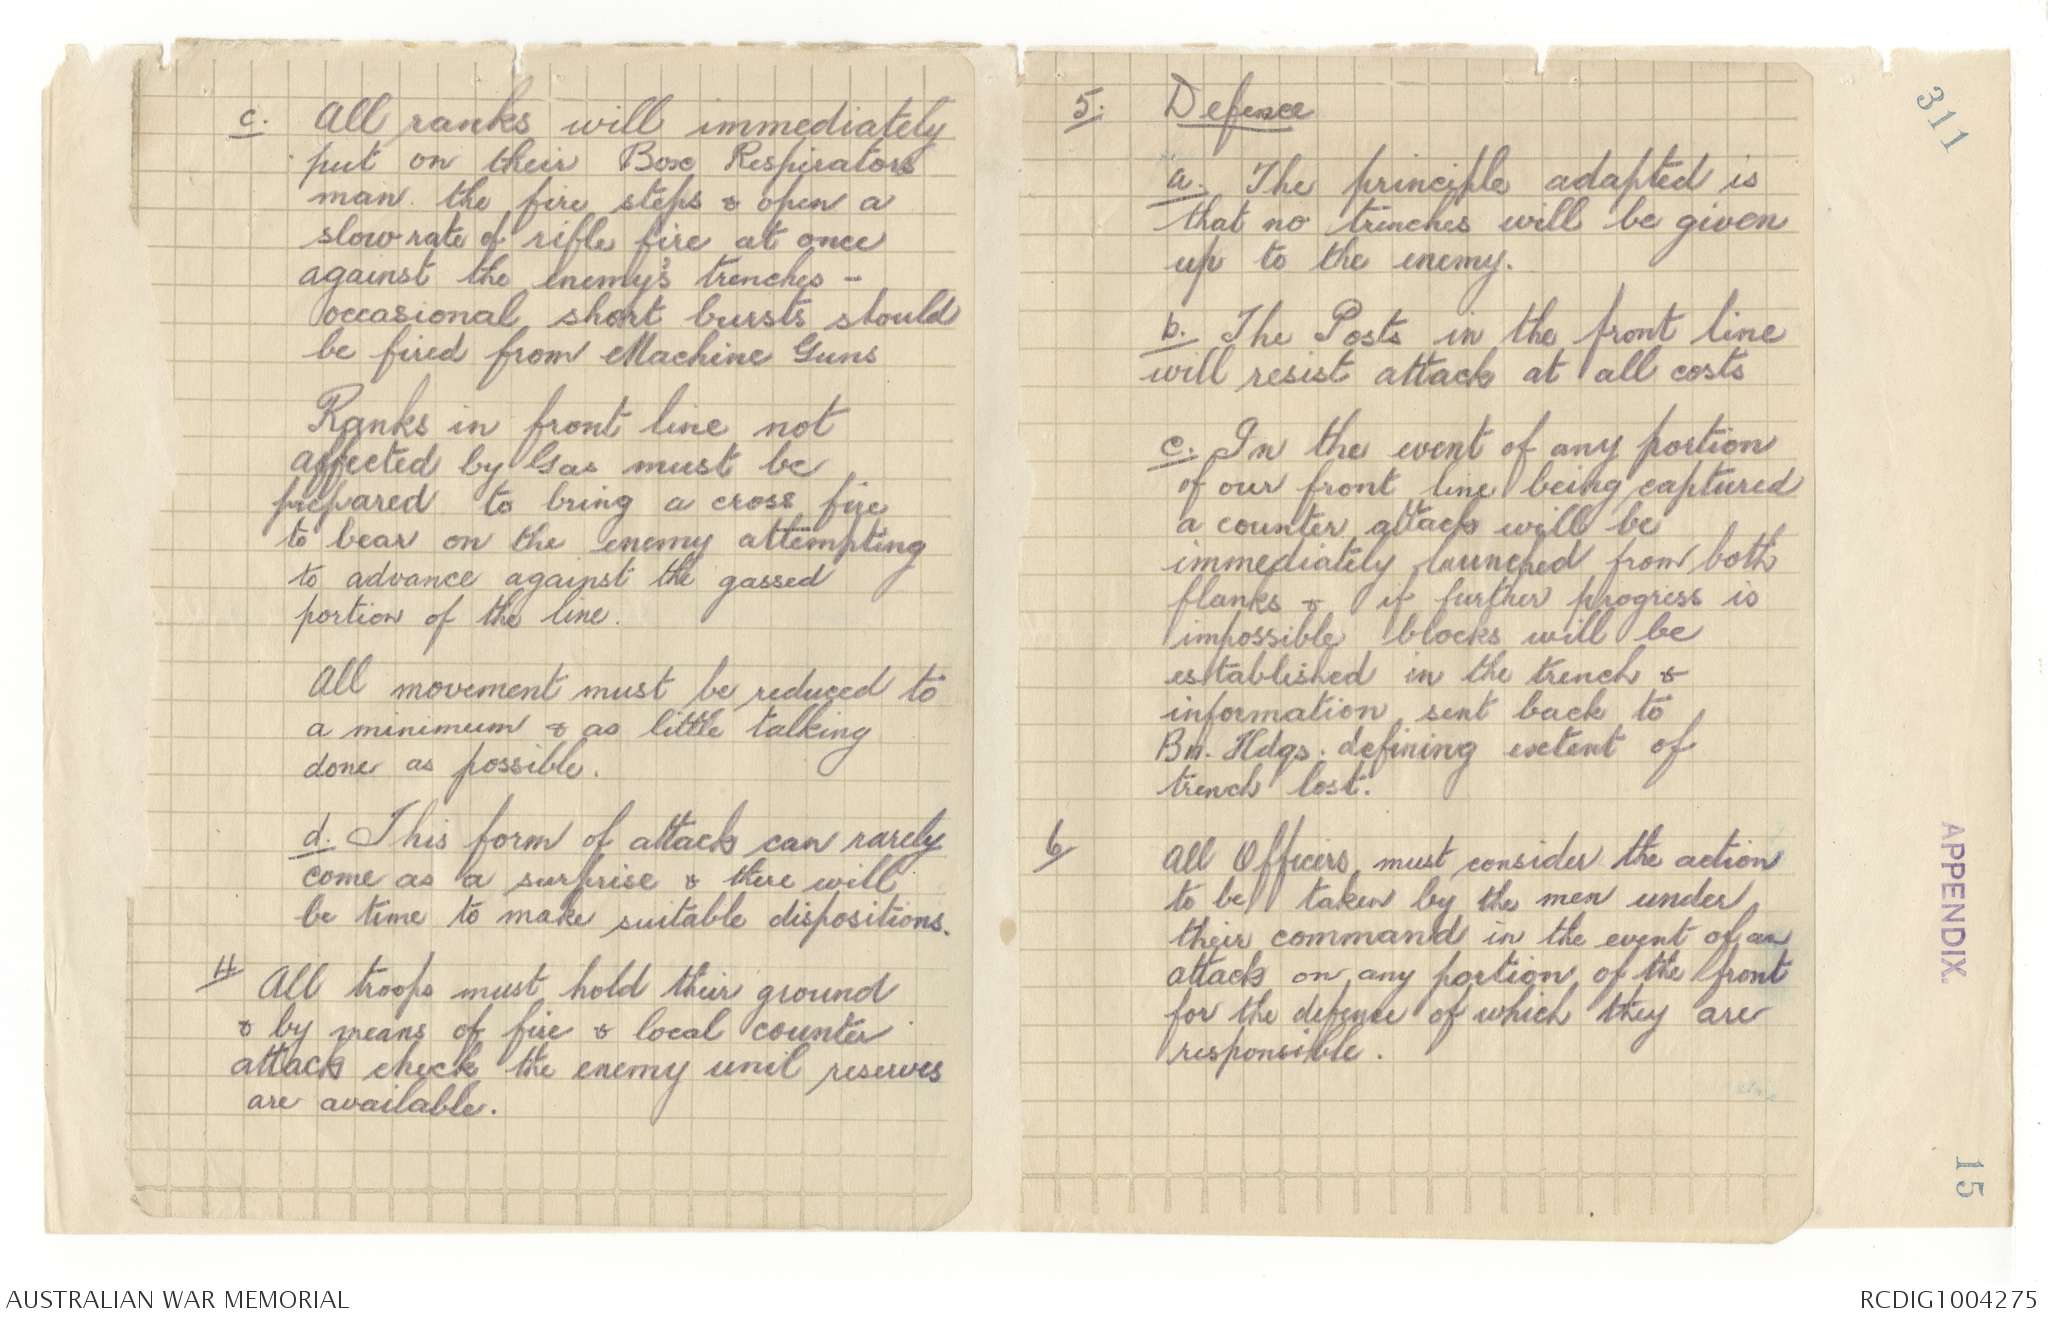 c. All ranks will immediately
put on their Box Respirators
man the fire steps & open a
slow rate of rifle fire at once
against the enemy's trenches -
occasional short bursts should
be fired from Machine Guns
Ranks in front line not
affected by Gas must be
prepared to bring a cross fire
to bear on the enemy attempting
to advance against the gassed
portion of the line.
All movement must be reduced to
a minimum & as little talking
done as possible.
d. This form of attack can rarely
come as a surprise & there will
be time to make suitable dispositions.
4 All troops must hold their ground
& by means of fire & local counter
attack check the enemy unil reserves
are available.
5. Defence
a. The principle adapted is
that no trenches will be given
up to the enemy.
b. The Posts in the front line
will resist attack at all costs
c. In the event of any portion
of our front line being captured
a counter attack will be
immediately launched from both
flanks & if further progress is
impossible blocks will be
established in the trench &
information sent back to
Bn. Hdqs. defining extent of
trench lost.
6 All Officers must consider the action
to be taken by the men under
their command in the event of an
attack on any portion of the front
for the defence of which they are
responsible.
311
APPENDIX.
15
AUSTRALIAN WAR MEMORIAL
RCDIG1004275